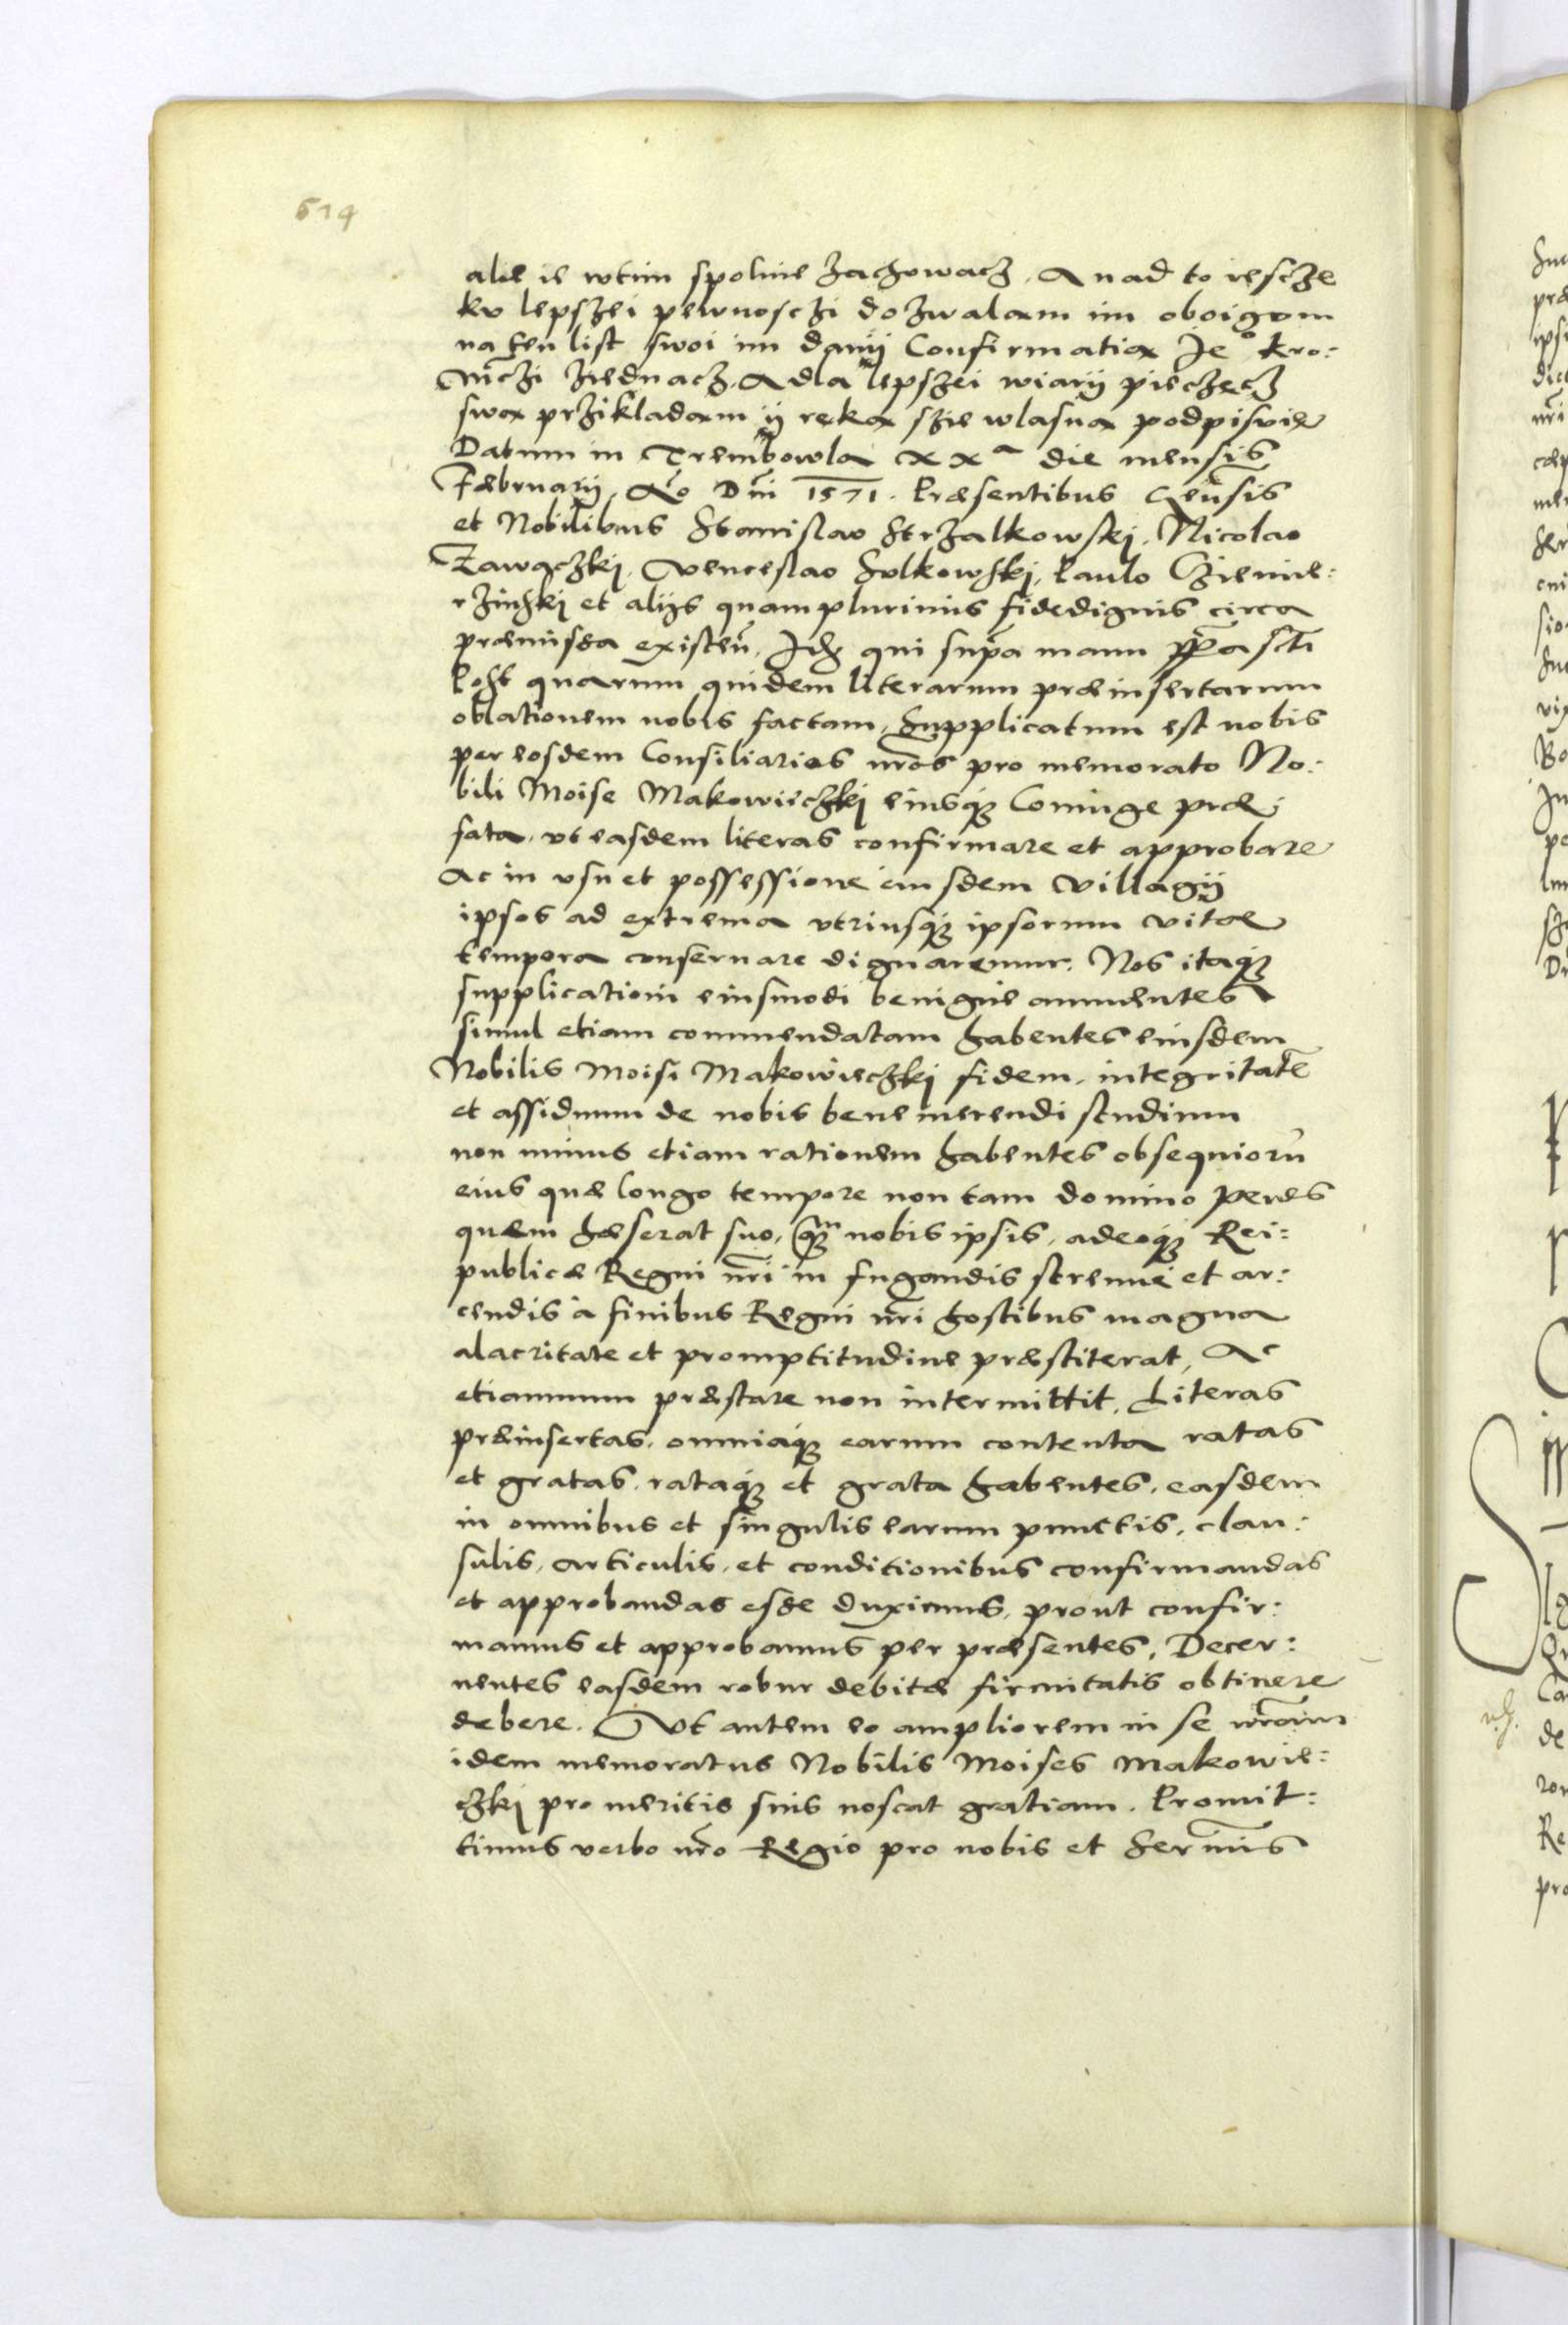 614
alie ie wtim spolnie zachowacz. A nad to iescze
ku lepszei pewnosczi dozwalam im oboigom
na ten list swoi im daniÿ Confirmatią Je° Kro:
Mczi ziednacz. A dla lepszei wiarÿ pieczęcz
swą przikladam ÿ ręką szie wlasną podpisuię
Datum in Trembowla XXa die mensis
Februarÿ, Ao Dni 1571. Præsentibus Gensis
et Nobilibus Stanislao Strzalkowskj, Nicolao
Zawaczkj, Venceslao Sulkowskj, Paulo Czemie:
rzinskj et alijs quamplurimis fidedignis circa
præmissa existen. Idem qui supra manu ppa scti
Post quarum quidem literarum præinsertarum
oblationem nobis factam, Supplicatum est nobis
per eosdem Consiliarios nros pro memorato No:
bili Moise Makowieczkj eiusque Coniuge præ:
fata, ut easdem literas confirmare et approbare
Ac in usu et possessione eiusdem Villagÿ
ipsos ad extrema utriusque ipsorum vitæ
tempora conseruare dignaremur. Nos itaque
supplicationi eiusmodi benigne annuentes
simul etiam commendatam habentes eiusdem
Nobilis Moisi Makowieczkj fidem, integritate
et assiduum de nobis bene merendi studium
non minus etiam rationem habentes obsequioru
eius quæ longo tempore non tam domino penes
quem hæserat suo, quam nobis ipsis, adeoque Rei:
publicæ Regni nri in fugandis strenue et ar:
cendis à finibus Regni nri hostibus magna
alacritate et promptitudine præstiterat, Ac
etiamnum præstare non intermittit, Literas
præinsertas, omniaque earum contenta ratas
et gratas, rataque et grata habentes, easdem
in omnibus et singulis earum punctis, clau:
sulis, articulis, et conditionibus confirmandas
et approbandas esse duximus, prout confir:
mamus et approbamus per præsentes, Decer:
nentes easdem robur debitæ firmitatis obtinere
debere. Ut autem eo ampliorem in se nram
idem memoratus Nobilis Moises Makowie:
czkj pro meritis suis noscat gratiam. Promit:
timus verbo nro Regio pro nobis et Sermis